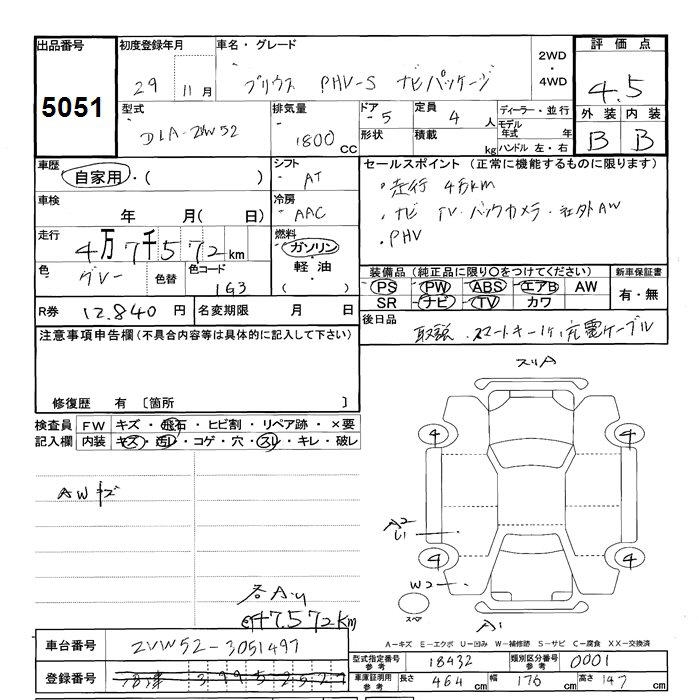 出品番号 初度登録年月 車名・グレード 2WD・4WD 評価点
5051 29 11月 プリウス PHV-S ナビパッケージ 4.5
型式 排気量 ドア 5 定員 4人 ディーラー・並行 外装 内装
DLA-ZVW52 1800cc 形状 積載 kg モデル年式 年 B B
ハンドル 左・右
車歴 シフト セールスポイント(正常に機能するものに限ります)
自家用・( ) AT ・走行 4万km
車検 冷房 ・ナビ TV・バックカメラ・社外AW
年 月(日) AAC ・PHV
走行 4万7千572km 燃料 ガソリン・軽油・( )
色 グレー 色替 色コード 1G3
装備品(純正品に限り○をつけてください) 新車保証書
PS PW ABS エアB AW 有・無
SR ナビ TV カワ
R券 12,840円 名変期限 月 日
後日品 取説、スマートキー1ケ、充電ケーブル
注意事項申告欄(不具合内容等は具体的に記入して下さい)
修復歴 有 〔箇所 〕
検査員 FW キズ・飛石・ヒビ割・リペア跡・×要
記入欄 内装 キズ・汚レ・コゲ・穴・スレ・キレ・破レ
AWキズ
スリA
4 4
A2
U1
4 4
W2
スペア
A1
47,572km
A-キズ E-エクボ U-凹み W-補修跡 S-サビ C-腐食 XX-交換済
車台番号 ZVW52-3051497
登録番号
型式指定番号 参考 18432 類別区分番号 参考 0001
車庫証明用 参考 長さ 464cm 幅 176cm 高さ 147cm